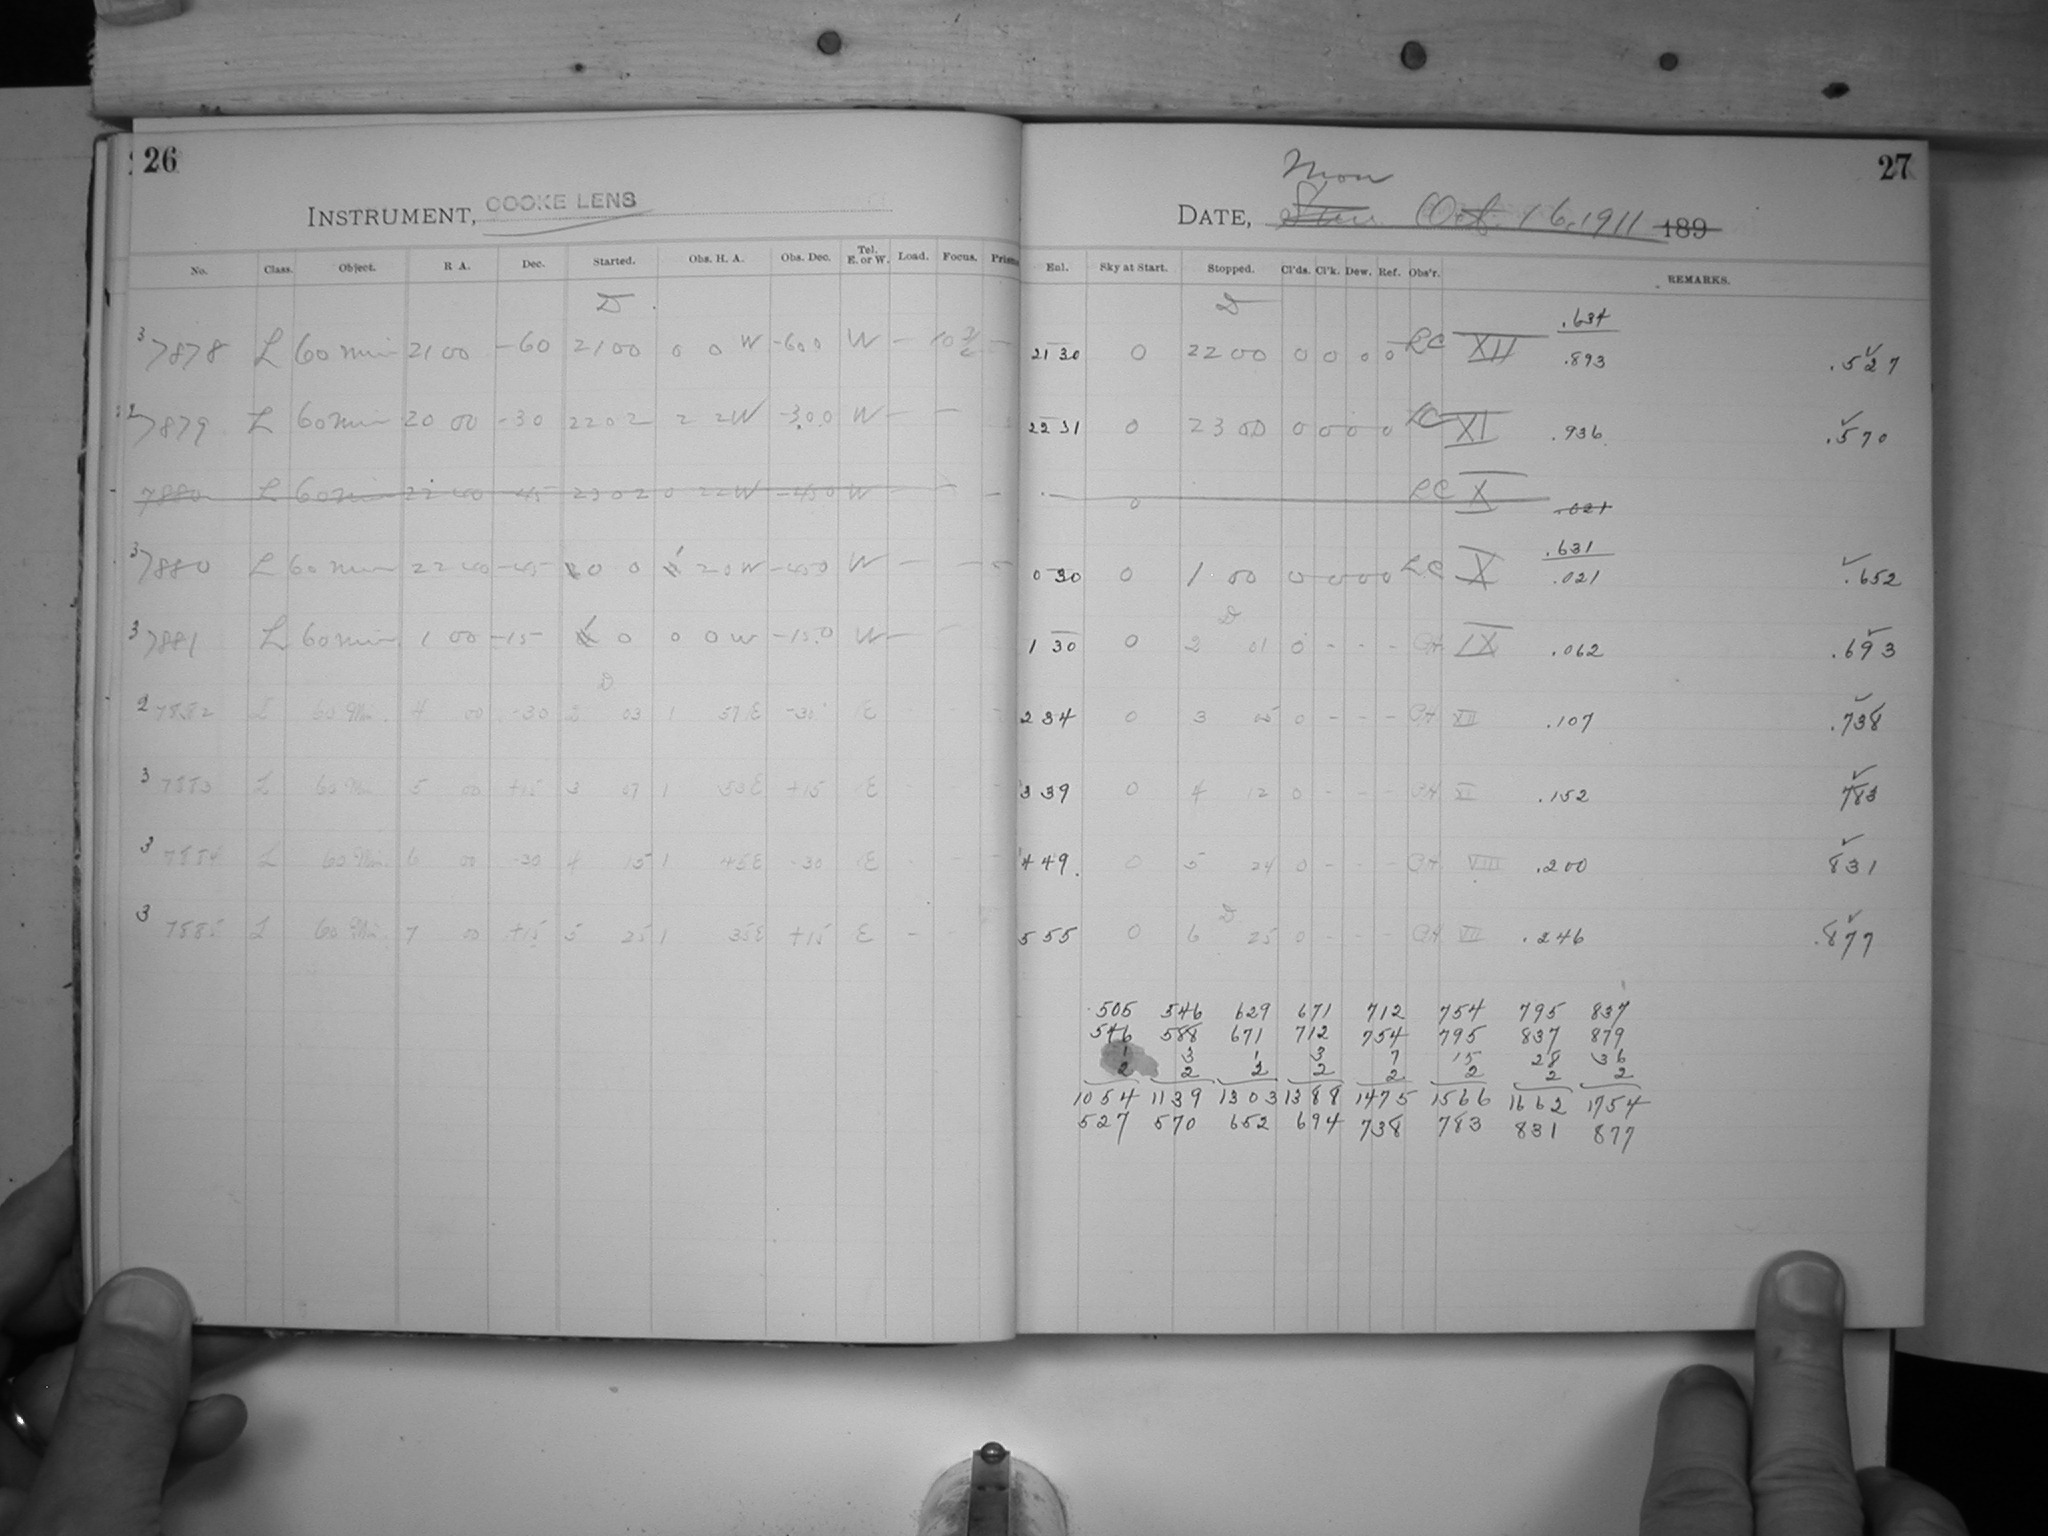 26
INSTRUMENT, COOKE LENS
No. Class. Object. R A. Dec. Started. Obs. H. A. Obs. Dec. Tel. E. or W. Load. Focus. Prism
D
3 7878 L 60 min 21 00 -60 21 00 0 0 W -60 0 W —
7879 L 60 min 20 00 -30 22 02 2 2 W -30.0 W — —
7880 L 60 min 22 40 -45 23 02 0 22 W -45 0 W — —
3 7880 L 60 min 22 40 -45 0 0 20 W -45 0 W — —
3 7881 L 60 min 1 00 -15 0 0 0 W -15.0 W —
D
2 7882 L 60 Min. 4 00 -30 2 03 1 57 E -30 E
3 7883 L 60 Min. 5 00 +15 3 07 1 53 E +15 E
3 7884 L 60 Min. 6 00 -30 4 15 1 45 E -30 E
3 7885 L 60 Min. 7 00 +15 5 25 1 35 E +15 E -
27
Mon
DATE, Sun Oct. 16, 1911 189
Enl. Sky at Start. Stopped. Cl'ds. Cl'k. Dew. Ref. Obs'r. REMARKS.
D .634
21 30 0 22 00 0 0 0 0 LC XII .893 .527
22 31 0 23 00 0 0 0 0 LC XI .936 .570
0 LC X .021
.631
0 30 0 1 00 0 0 0 0 LC X .021 .652
D
1 30 0 2 01 0 - - - IX .062 .693
2 34 0 3 05 0 - - - XII .107 .738
3 39 0 4 12 0 - - - XI .152 783
4 49 0 5 24 0 - - - VIII .200 831
D
5 55 0 6 25 0 - - - VII .246 .877
505 546 629 671 712 754 795 837
546 588 671 712 754 795 837 879
1 3 1 3 7 15 28 36
2 2 2 2 2 2 2 2
1054 1139 1303 1388 1475 1566 1662 1754
527 570 652 694 738 783 831 877